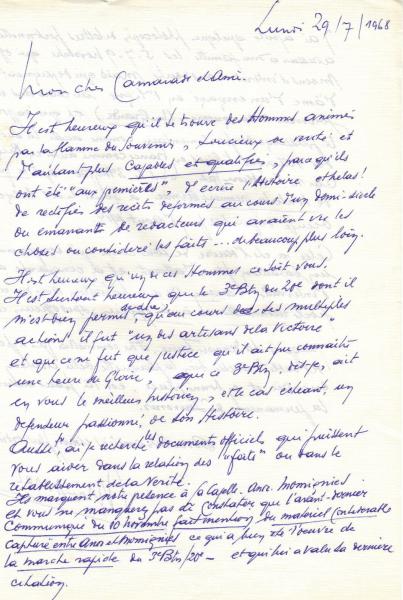 Lundi 29/7/1968
Mon cher Camarade et Ami.
Il est heureux qu'il se trouve des Hommes animés
par la flamme du Souvenir, soucieux de vérité et
d'autant plus capables et qualifiés, parce qu'ils
ont été "aux premières", d'écrire l'Histoire et hélas!
de rectifier des récits déformés au cours d'un demi-siècle
ou émanants de rédacteurs qui avaient vu les
choses ou considéré les faits ... de beaucoup plus loin.
Il est heureux qu'un de ces Hommes ce soit vous.
Il est surtout heureux que le 3e Btn du 20e dont il
m'est bien permis de dire, qu'au cours de ses multiples
actions il fut "un des artisans de la Victoire"
et que ce ne fut que justice qu'il ait pu connaître
une heure de Gloire, que ce 3e Btn, dis-je, ait
en vous le meilleur historien, et le cas échéant, un
défenseur passionné, de son Histoire.
Aussi, ai je recherché les documents officiels qui puissent
vous aider dans la relation des "faits" ou dans le
rétablissement de la Vérité.
Ils marquent notre présence à La Capelle. Anor. Momignies
et vous ne manquerez pas de constater que l'avant-dernier
Communiqué du 10 novembre fait mention du matériel considérable
capturé entre Anor et Momignies ce qui a bien été l'oeuvre de
la marche rapide du 3e Btn/20e - et qui lui a valu sa dernière
citation.